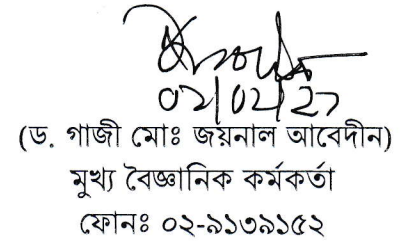 (ড. গাজী মোঃ জয়নাল আবেদীন)
মুখ্য বৈজ্ঞানিক কর্মকর্তা
ফোনঃ ০২-৯১৩৯১৫২